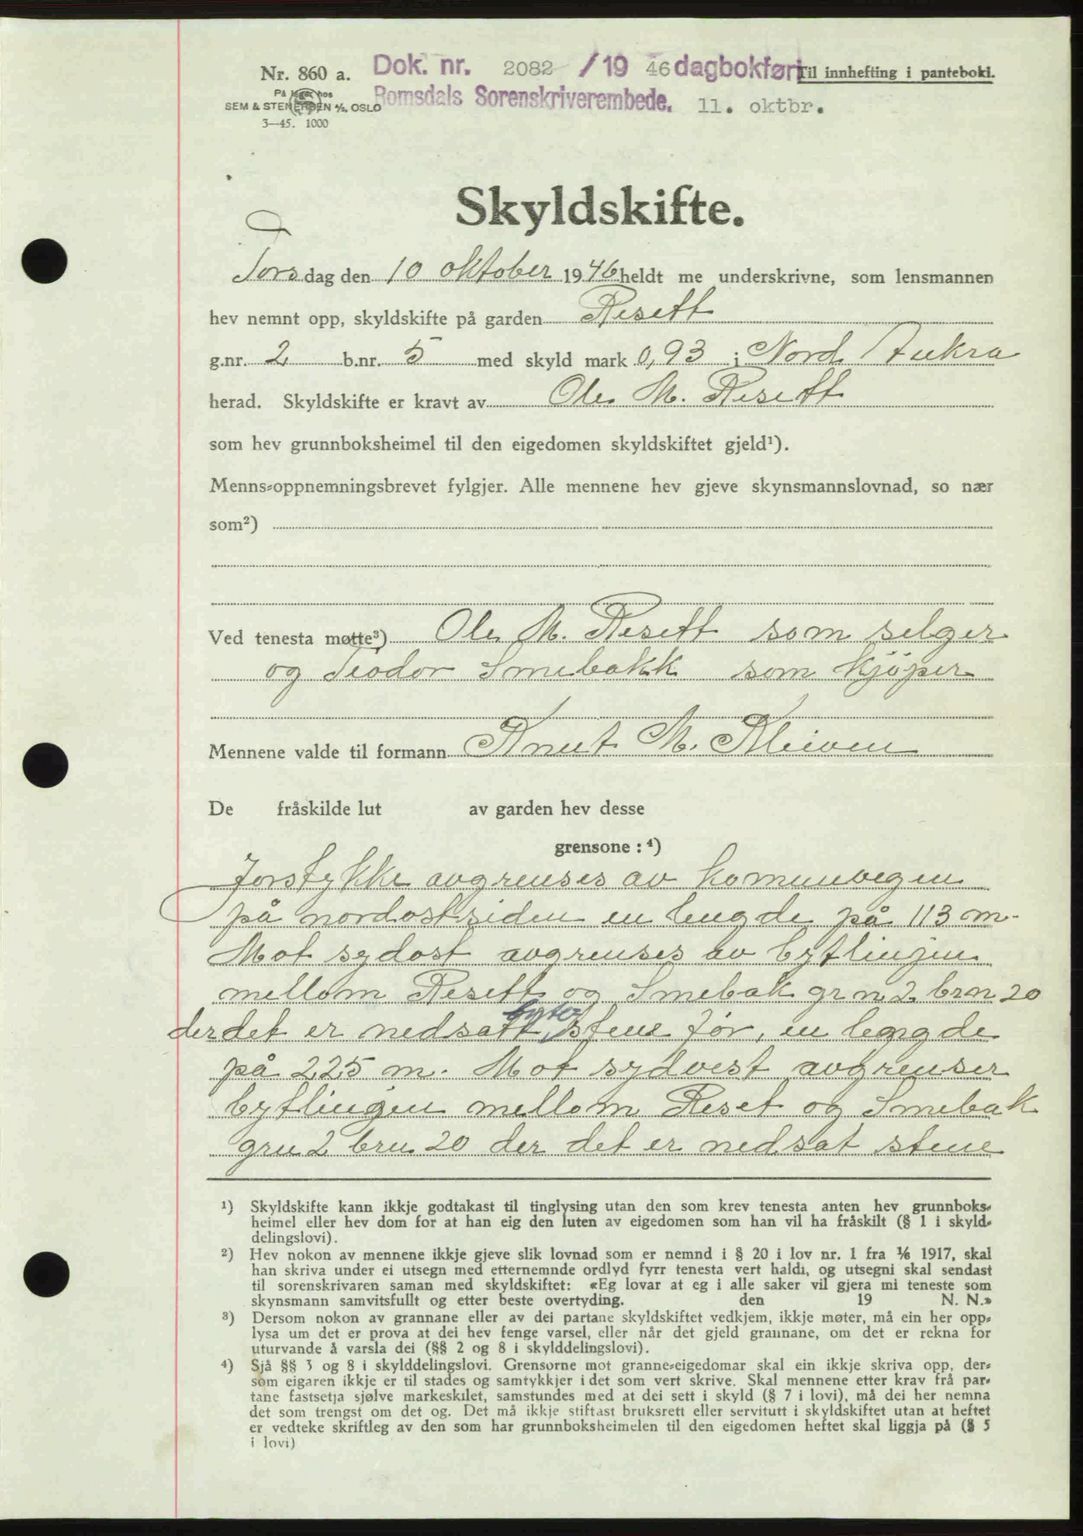 Nr. 860 a. Dok. nr. 2082 /19 46 dagbokført Til innhefting i panteboki.
SEM & STENERSEN A/S, OSLO Romsdals Sorenskriverembede. 11. oktbr.
3—45. 1000
Skyldskifte.
Torsdag den 10 oktober 1946 heldt me underskrivne, som lensmannen
hev nemnt opp, skyldskifte på garden Resett
g.nr. 2 b.nr. 5 med skyld mark 0,93 i Nord Aukra
herad. Skyldskifte er kravt av Ole M. Resett
som hev grunnboksheimel til den eigedomen skyldskiftet gjeld¹).
Menns-oppnemningsbrevet fylgjer. Alle mennene hev gjeve skynsmannslovnad, so nær
som²)
Ved tenesta møtte³) Ole M. Resett som selger
og Teodor Smebakk som kjøper
Mennene valde til formann Knut M. Kleiven
De fråskilde lut av garden hev desse
grensone : ⁴)
Jorstykke avgrenses av komunvegen
på nordostsiden en lengde på 113 m.
Mot sydost avgrenses av bytlinjen
mellom Resett og Smebak grn 2 brn 20
der det er nedsatt bytes stene før, en lengde
på 225 m. Mot sydvest avgrenser
bytlingen mellom Reset og Smebak
grn 2 brn 20 der det er nedsat stene
¹) Skyldskifte kann ikkje godtakast til tinglysing utan den som krev tenesta anten hev grunnboks-
heimel eller hev dom for at han eig den luten av eigedomen som han vil ha fråskilt (§ 1 i skyld-
delingslovi).
²) Hev nokon av mennene ikkje gjeve slik lovnad som er nemnd i § 20 i lov nr. 1 fra ¹/₆ 1917, skal
han skriva under ei utsegn med etternemnde ordlyd fyrr tenesta vert haldi, og utsegni skal sendast
til sorenskrivaren saman med skyldskiftet: «Eg lovar at eg i alle saker vil gjera mi teneste som
skynsmann samvitsfullt og etter beste overtyding. den 19 N. N.»
³) Dersom nokon av grannane eller av dei partane skyldskiftet vedkjem, ikkje møter, må ein her opp-
lysa um det er prova at dei hev fenge varsel, eller når det gjeld grannane, om det er rekna for
uturvande å varsla dei (§§ 2 og 8 i skylddelingslovi).
⁴) Sjå §§ 3 og 8 i skylddelingslovi. Grensorne mot granne-eigedomar skal ein ikkje skriva opp, der-
som eigaren ikkje er til stades og samtykkjer i det som vert skrive. Skal mennene etter krav frå par-
tane fastsetja sjølve markeskilet, samstundes med at dei sett i skyld (§ 7 i lovi), må dei her nemna
det som trengst om det og. Det må ikkje stiftast bruksrett eller servitutt i skyldskiftet utan at heftet
er vedteke skriftleg av den som har grunnboksheimelen til den eigedomen heftet skal liggja på (§ 5
i lovi)